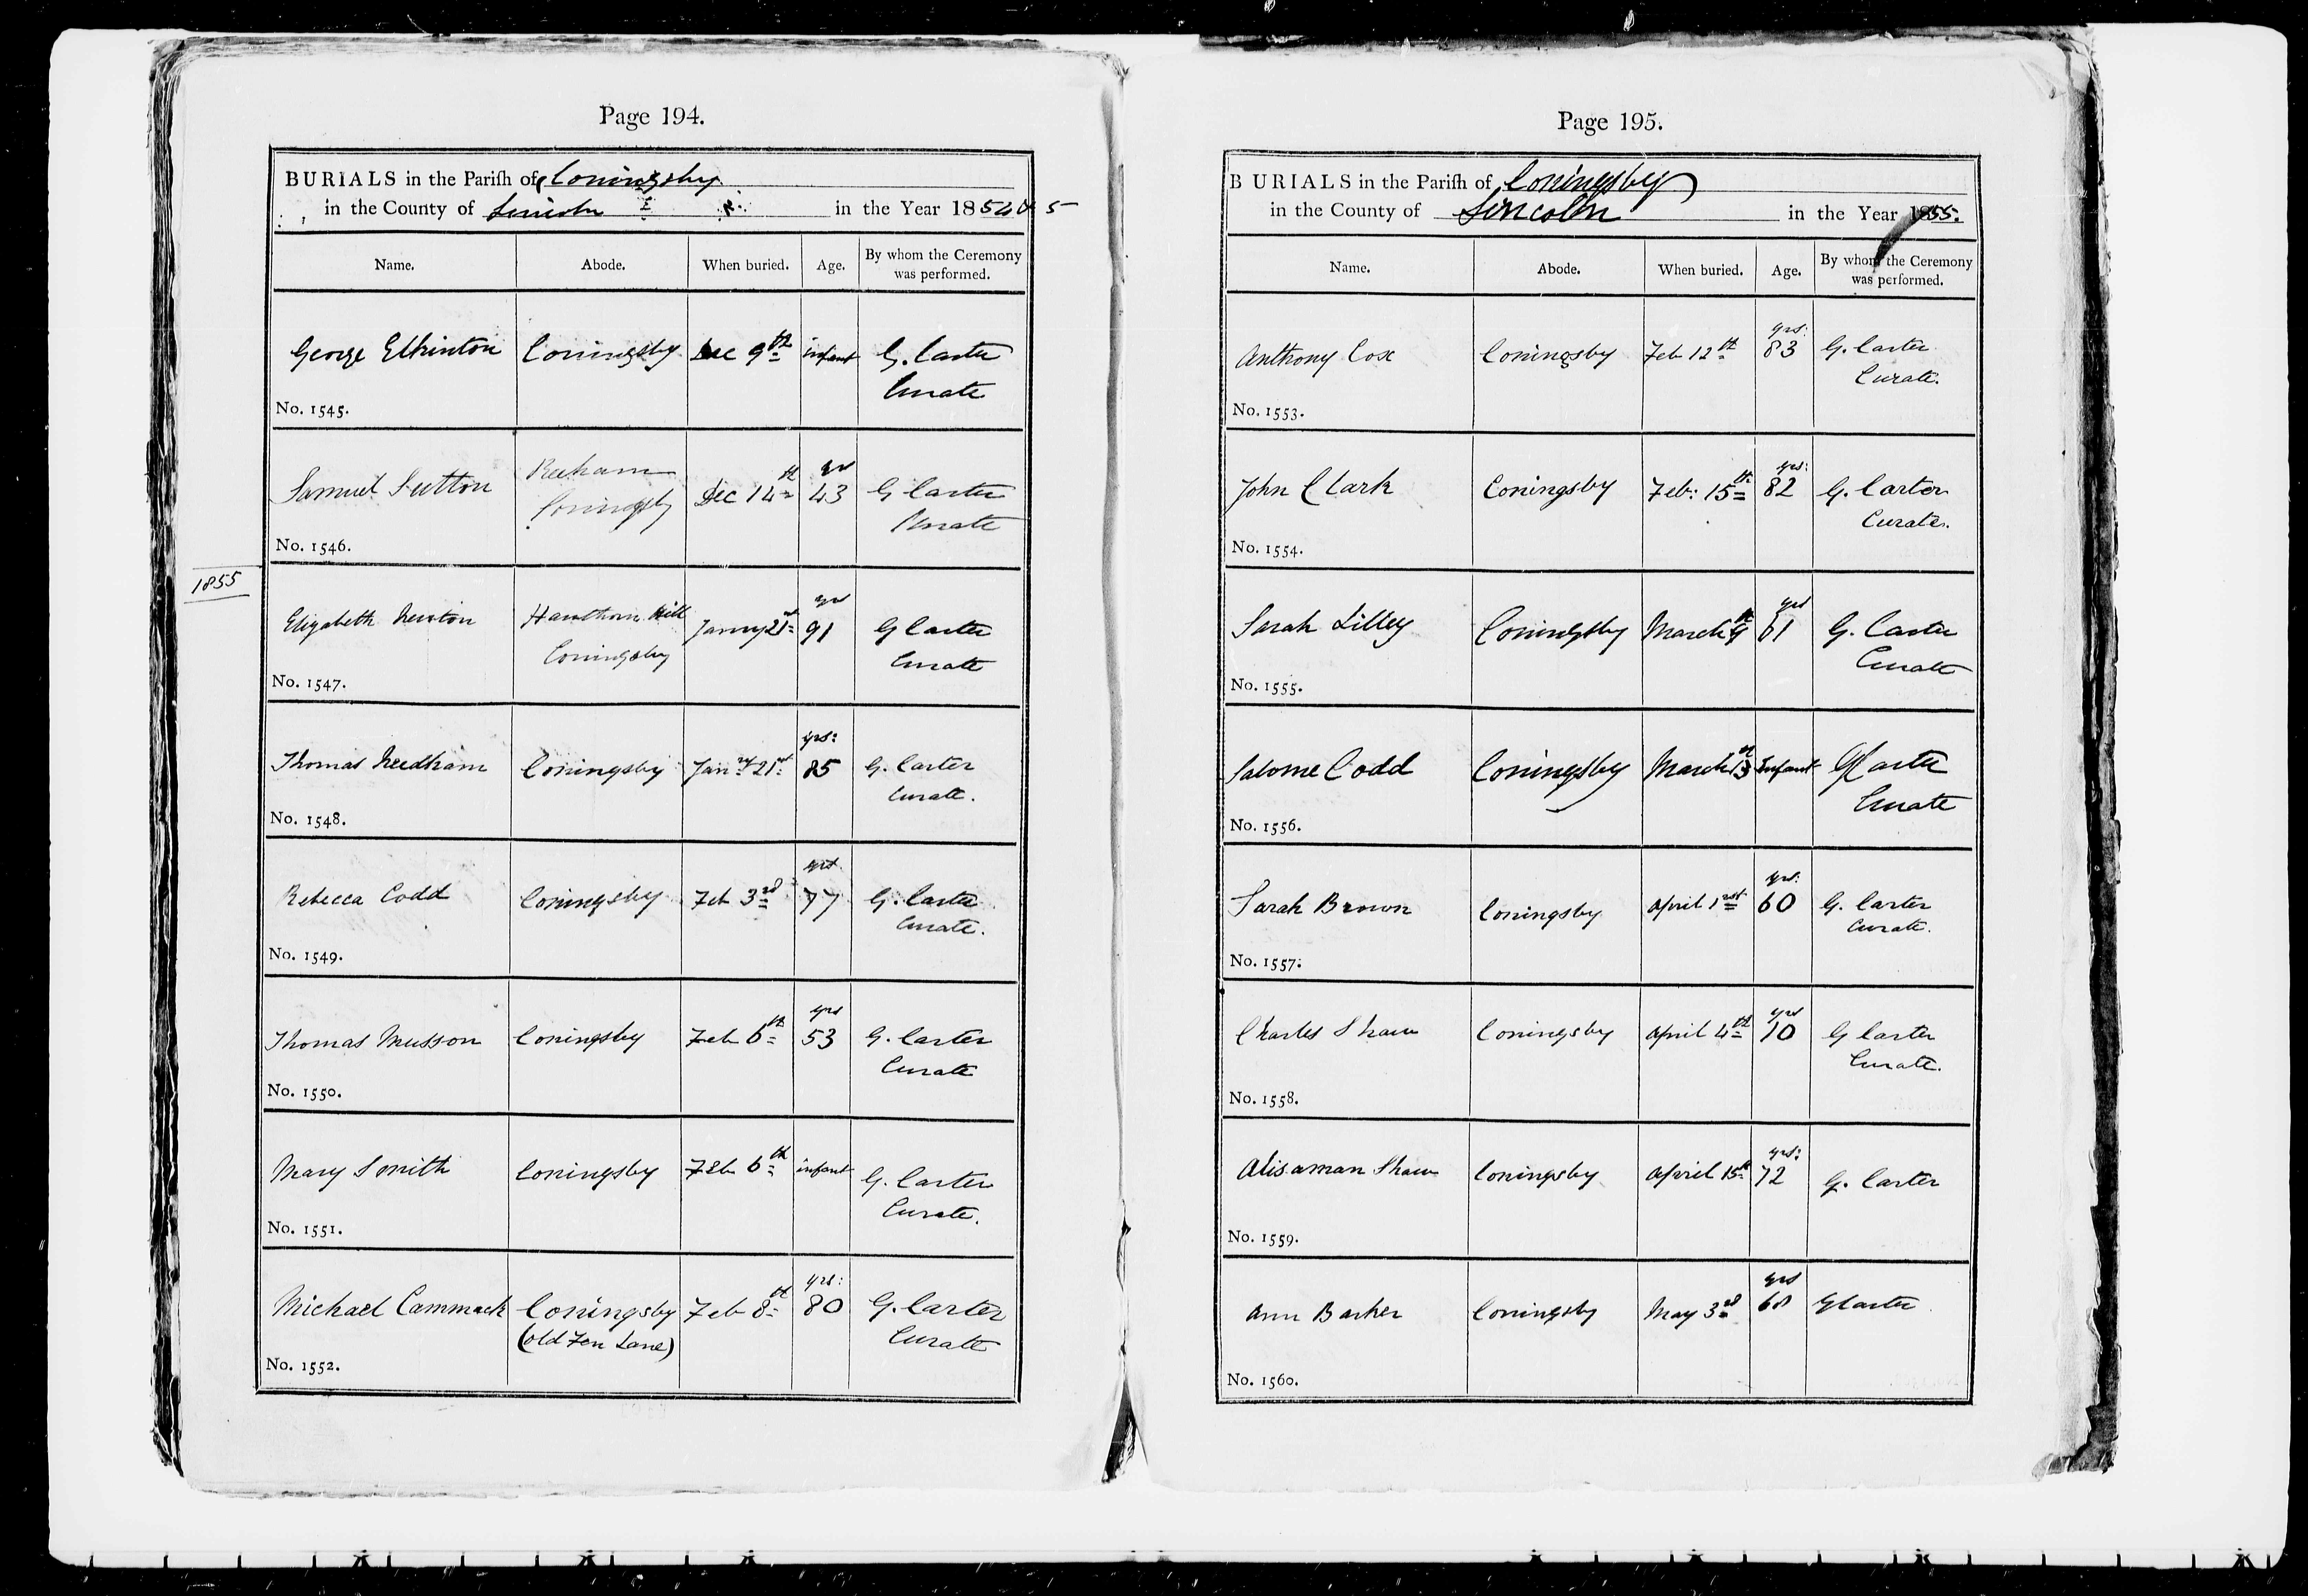 Page 194.
BURIALS in the Parish of Coningsby
in the County of Lincoln in the Year 1854 & 5
Name. Abode. When buried. Age. By whom the Ceremony was performed.
George Elkinton Coningsby Dec 9th infant G. Carter
Curate
No. 1545.
yrs
Samuel Sutton Coningsby Dec 14th 43 G Carter
Curate
No. 1546.
1855
yrs
Elizabeth Newton Hawthorn Hill Jany 21st 91 G Carter
Coningsby Curate
No. 1547.
yrs:
Thomas Needham Coningsby Janry 21st 85 G. Carter
Curate.
No. 1548.
yrs.
Rebecca Codd Coningsby Feb 3rd 77 G. Carter
Curate.
No. 1549.
yrs
Thomas Musson Coningsby Feb 6th 53 G. Carter
Curate
No. 1550.
Mary Smith Coningsby Feb 6th infant G. Carter
Curate.
No. 1551.
yrs:
Michael Cammack Coningsby Feb 8th 80 G. Carter
(Old Fen Lane) Curate
No. 1552.
Page 195.
BURIALS in the Parish of Coningsby
in the County of Lincoln in the Year 1855.
Name. Abode. When buried. Age. By whom the Ceremony was performed.
yrs:
Anthony Cox Coningsby Feb 12th 83 G. Carter
Curate.
No. 1553.
yrs:
John Clark Coningsby Feb: 15th 82 G. Carter
Curate.
No. 1554.
yrs
Sarah Lilley Coningsby March 9th 61 G. Carter
Curate
No. 1555.
Salome Codd Coningsby March 13th Infant G Carter
Curate
No. 1556.
yrs:
Sarah Brown Coningsby April 1st 60 G. Carter
Curate.
No. 1557.
yrs
Charles Shaw Coningsby April 4th 70 G Carter
Curate.
No. 1558.
yrs:
Alisaman Shaw Coningsby April 15th 72 G. Carter
No. 1559.
yrs
Ann Barker Coningsby May 3rd 68 G Carter
No. 1560.